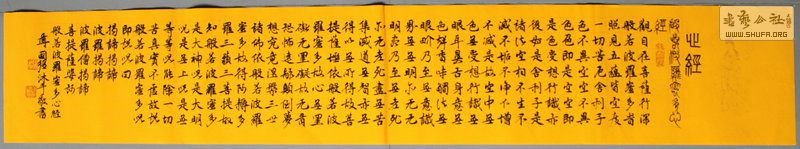 书艺公社
WWW.SHUFA.ORG
心經
般若波羅蜜多心
經
觀自在菩薩行深
般若波羅蜜多時
照見五蘊皆空度
一切苦厄舍利子
色不異空空不異
色色即是空空即
是色受想行識亦
復如是舍利子是
諸法空相不生不
滅不垢不淨不增
不減是故空中無
色無受想行識無
眼耳鼻舌身意無
色聲香味觸法無
眼界乃至無意識
界無無明亦無無
明盡乃至無老死
亦無老死盡無苦
集滅道無智亦無
得以無所得故菩
提薩埵依般若波
羅蜜多故心無罣
礙無罣礙故無有
恐怖遠離顛倒夢
想究竟涅槃三世
諸佛依般若波羅
蜜多故得阿耨多
羅三藐三菩提故
知般若波羅蜜多
是大神咒是大明
咒是無上咒是無
等等咒能除一切
苦真實不虛故說
般若波羅蜜多咒
即說咒曰
揭諦揭諦
波羅揭諦
波羅僧揭諦
菩提薩婆訶
般若波羅蜜多心經
沐手敬書